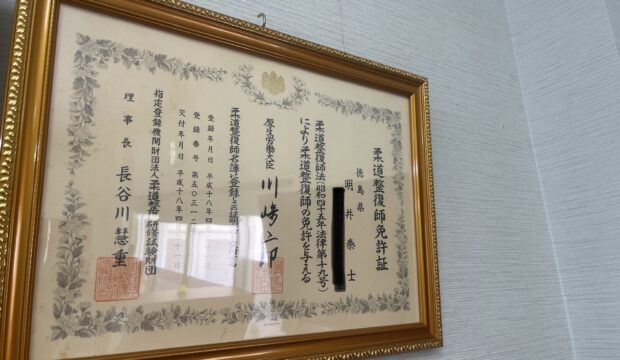 柔道整復師免許証
徳島県
明井泰士
柔道整復師法(昭和四十五年法律第十九号)
により柔道整復師の免許を与える
厚生労働大臣 川崎二郎
柔道整復師名簿に登録したことを証明する
登録年月日 平成十八年四月
登録番号 第五〇三一
交付年月日 平成十八年四月二十一日
指定登録機関財団法人柔道整復研修試験財団
理事長 長谷川慧重